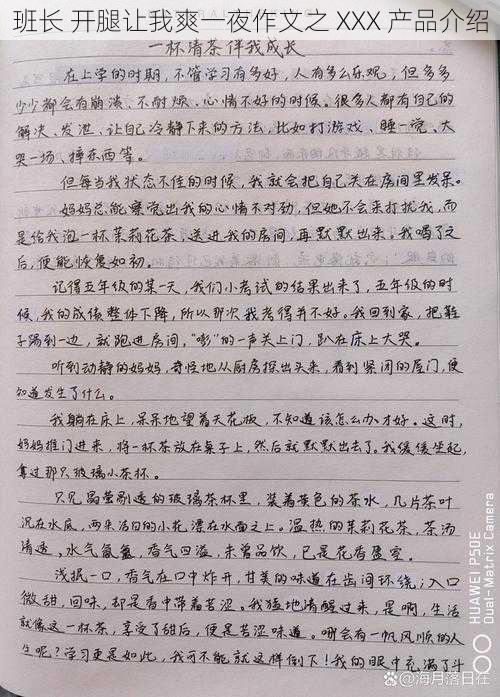 班长 开腿让我爽一夜作文之 XXX 产品介绍
一杯清茶伴我成长
在上学的时期，不管学习有多好，人有多么乐观，但多多
少少都会有崩溃、不耐烦、心情不好的时候。很多人都有自己的
解决、发泄，让自己冷静下来的方法，比如打游戏、睡一觉、大
哭一场、摔东西等。
但每当我状态不佳的时候，我就会把自己关在房间里发呆。
妈妈总能察觉出我的心情不对劲，但她不会来打扰我，而
是给我泡一杯茉莉花茶，送进我的房间，再默默出来。我喝了之
后，便能恢复如初。
记得五年级的某一天，我们小考试的结果出来了，五年级的时
候，我的成绩整体下降，所以那次我考得并不好。我回到家，把鞋
子踢到一边，就跑进房间，“嘭”的一声关上门，趴在床上大哭。
听到动静的妈妈，奇怪地从厨房探出头来，看到紧闭的屋门，便
知道发生了什么。
我躺在床上，呆呆地望着天花板，不知道该怎么办才好。这时，
妈妈推门进来，将一杯茶放在桌子上，然后就默默出去了。我缓缓坐起，
拿过那只玻璃小茶杯。
只见晶莹剔透的玻璃茶杯里，装着黄色的茶水，几片茶叶
沉在水底，两朵洁白的小花漂在水面之上。温热的茉莉花茶，茶汤
清透，水气氤氲，香气四溢，未曾品饮，已是花香盈室。
浅抿一口，香气在口中炸开，甘美的味道在齿间环绕；入口
微甜，回味，却是香中带着苦涩。我猛地清醒过来，是啊，生活
就像这一杯茶，享受了甜后，便是苦涩味道。哪会有一帆风顺的人
生呢？学习更是如此，我可不能就这样倒下！我的眼中充满了斗
HUAWEI P50E
Dual-Matrix Camera
@海月落日在